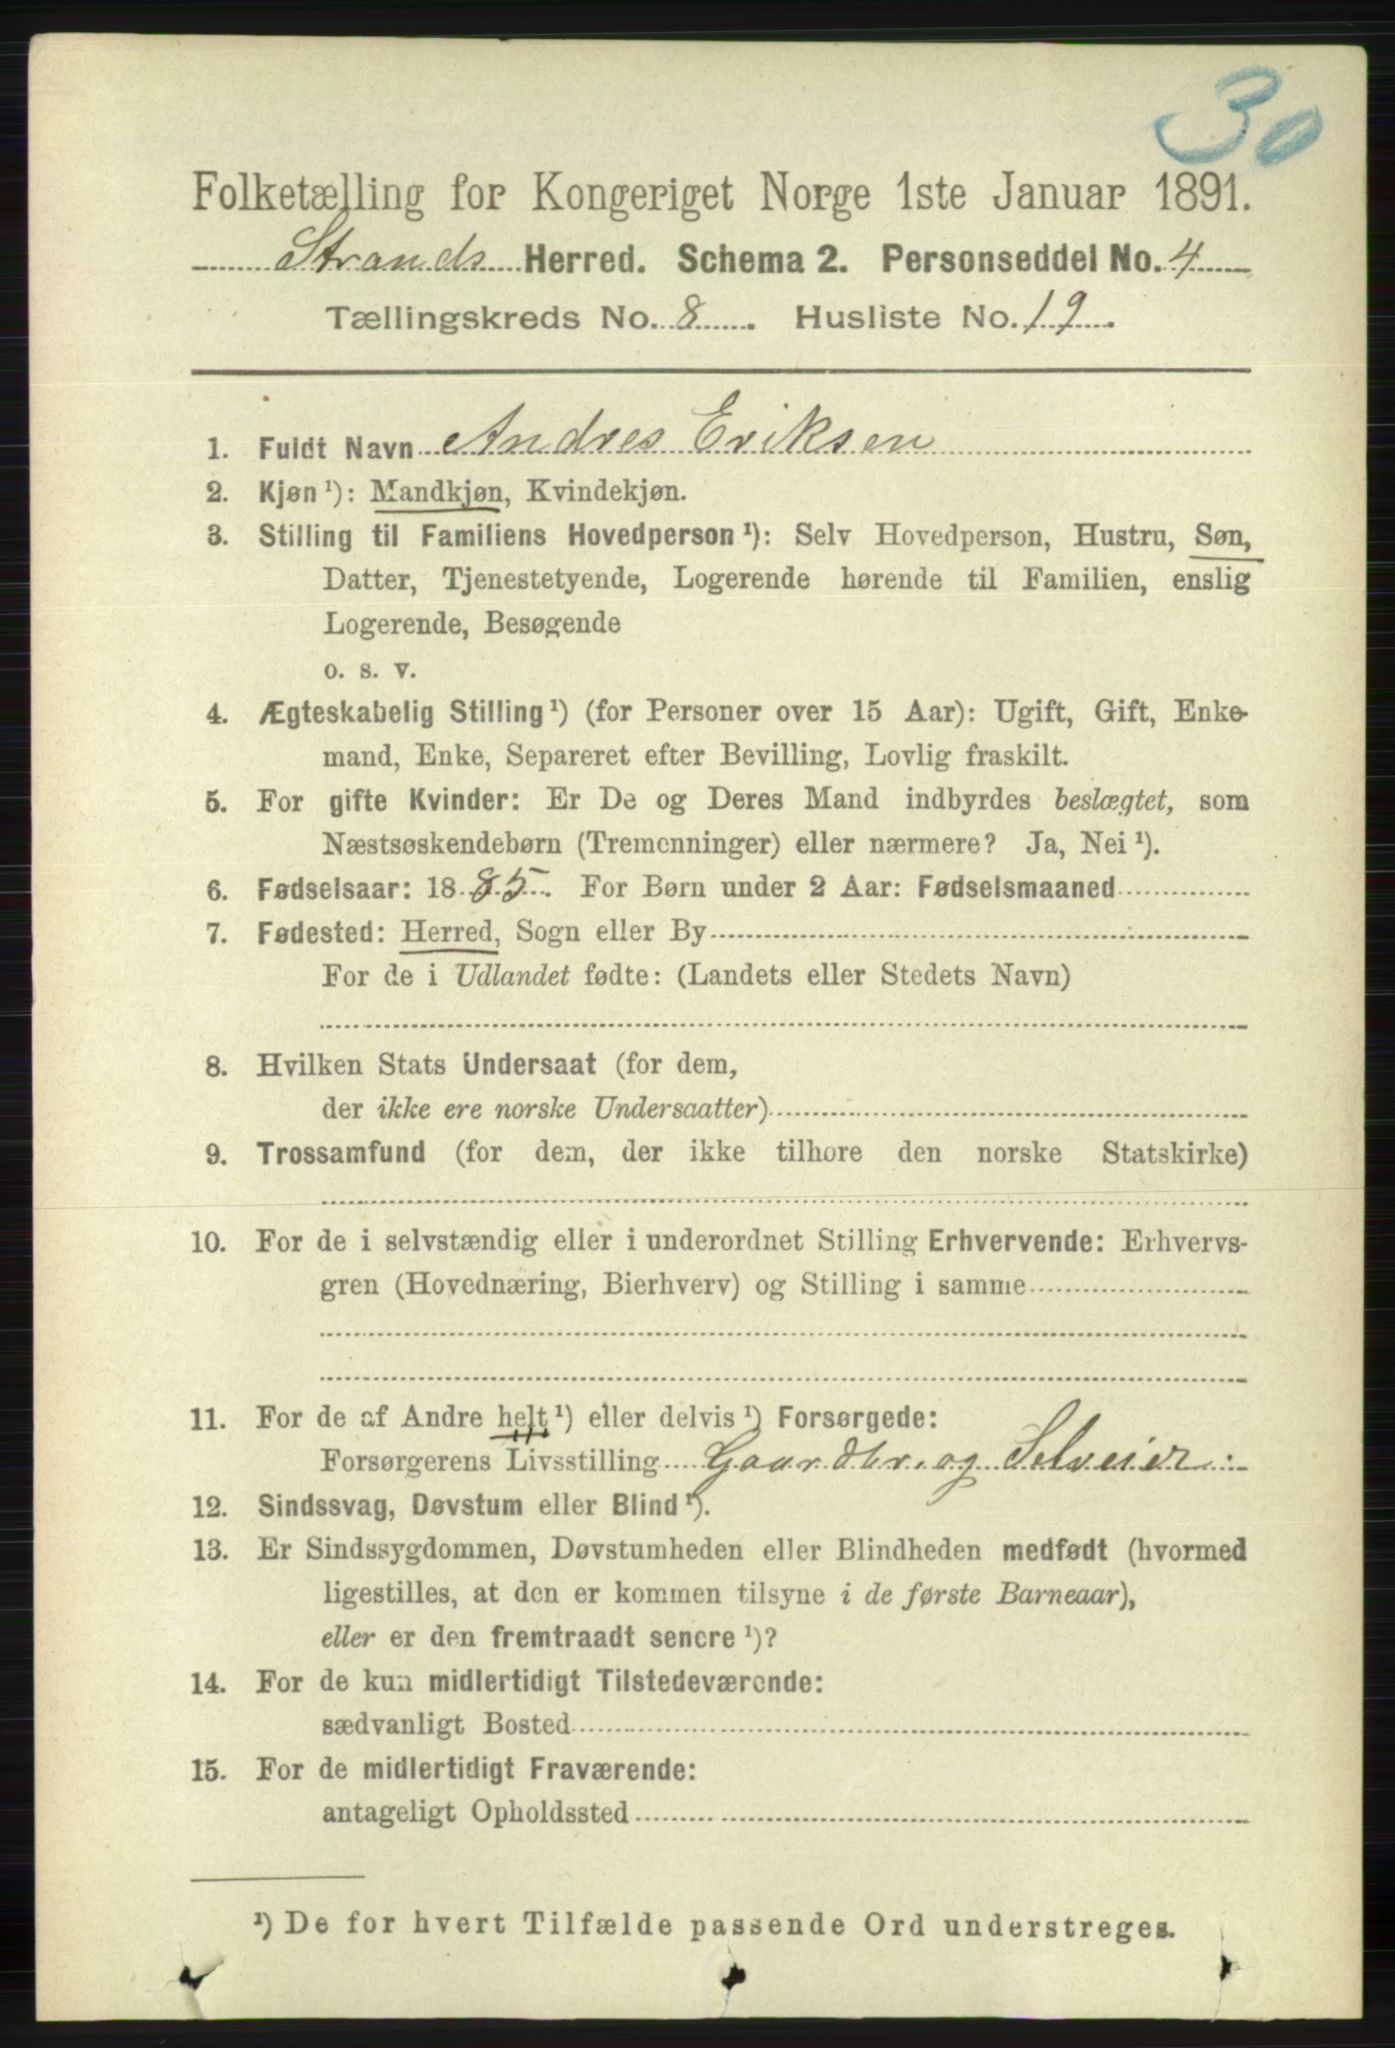 30
Folketælling for Kongeriget Norge 1ste Januar 1891.
Strands Herred. Schema 2. Personseddel No. 4
Tællingskreds No. 8. Husliste No. 19.
1. Fuldt Navn Andres Eriksen
2. Kjøn ¹): Mandkjøn, Kvindekjøn.
3. Stilling til Familiens Hovedperson ¹): Selv Hovedperson, Hustru, Søn,
Datter, Tjenestetyende, Logerende hørende til Familien, enslig
Logerende, Besøgende
o. s. v.
4. Ægteskabelig Stilling ¹) (for Personer over 15 Aar): Ugift, Gift, Enke-
mand, Enke, Separeret efter Bevilling, Lovlig fraskilt.
5. For gifte Kvinder: Er De og Deres Mand indbyrdes beslægtet, som
Næstsøskendebørn (Tremenninger) eller nærmere? Ja, Nei ¹).
6. Fødselsaar: 1885. For Børn under 2 Aar: Fødselsmaaned
7. Fødested: Herred, Sogn eller By
For de i Udlandet fødte: (Landets eller Stedets Navn)
8. Hvilken Stats Undersaat (for dem,
der ikke ere norske Undersaatter)
9. Trossamfund (for dem, der ikke tilhøre den norske Statskirke)
10. For de i selvstændig eller i underordnet Stilling Erhvervende: Erhvervs-
gren (Hovednæring, Bierhverv) og Stilling i samme
11. For de af Andre helt ¹) eller delvis ¹) Forsørgede:
Forsørgerens Livsstilling Gaardbr. og Selveier
12. Sindssvag, Døvstum eller Blind ¹).
13. Er Sindssygdommen, Døvstumheden eller Blindheden medfødt (hvormed
ligestilles, at den er kommen tilsyne i de første Barneaar),
eller er den fremtraadt senere ¹)?
14. For de kun midlertidigt Tilstedeværende:
sædvanligt Bosted
15. For de midlertidigt Fraværende:
antageligt Opholdssted
¹) De for hvert Tilfælde passende Ord understreges.